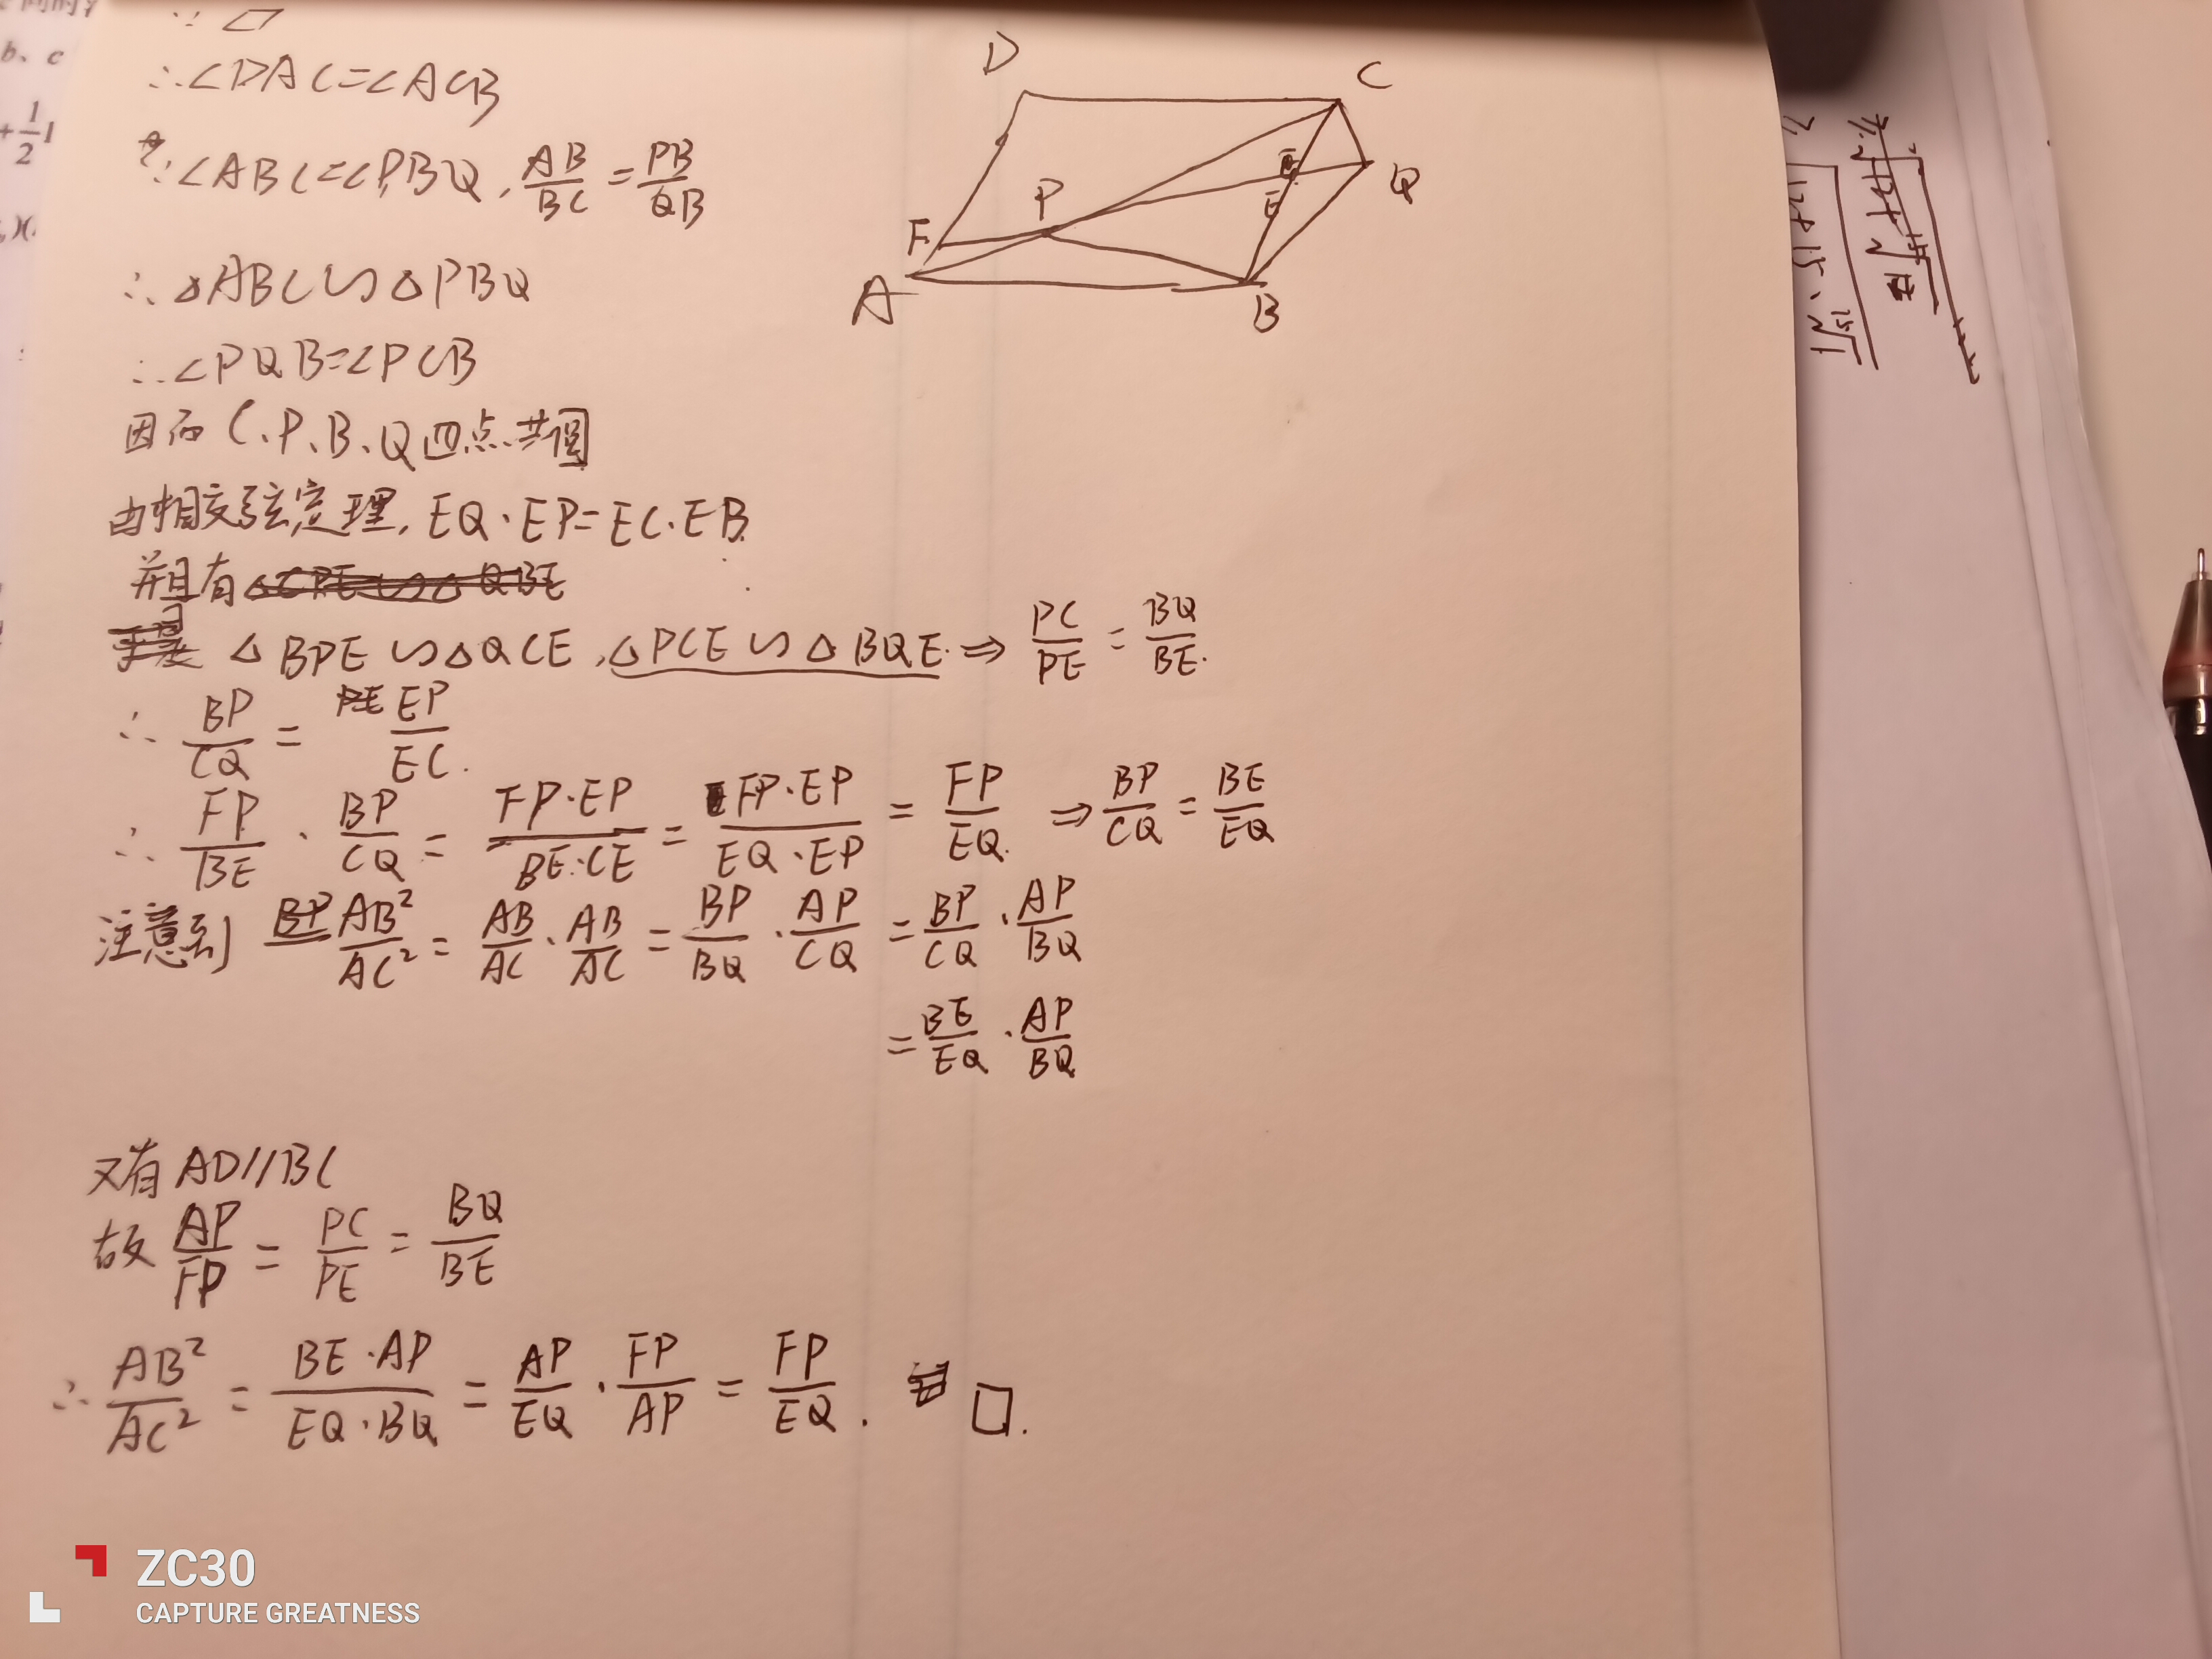 ∵ ▱
∴∠DAC=∠ACB
∵∠ABC=∠PBQ, AB/BC = PB/QB
∴△ABC∽△PBQ
∴∠PQB=∠PCB
因而 C、P、B、Q四点共圆
由相交弦定理, EQ·EP=EC·EB
并且有
△BPE∽△QCE, △PCE∽△BQE. ⇒ PC/PE = BQ/BE.
∴ BP/CQ = EP/EC.
∴ FP/BE · BP/CQ = FP·EP/BE·CE = FP·EP/EQ·EP = FP/EQ. ⇒ BP/CQ = BE/EQ
注意到 AB²/AC² = AB/AC · AB/AC = BP/BQ · AP/CQ = BP/CQ · AP/BQ
= BE/EQ · AP/BQ
又有 AD//BC
故 AP/FP = PC/PE = BQ/BE
∴ AB²/AC² = BE·AP/EQ·BQ = AP/EQ · FP/AP = FP/EQ. □.
D
C
Q
E
P
F
A
B
b、c
+1/2
ZC30
CAPTURE GREATNESS